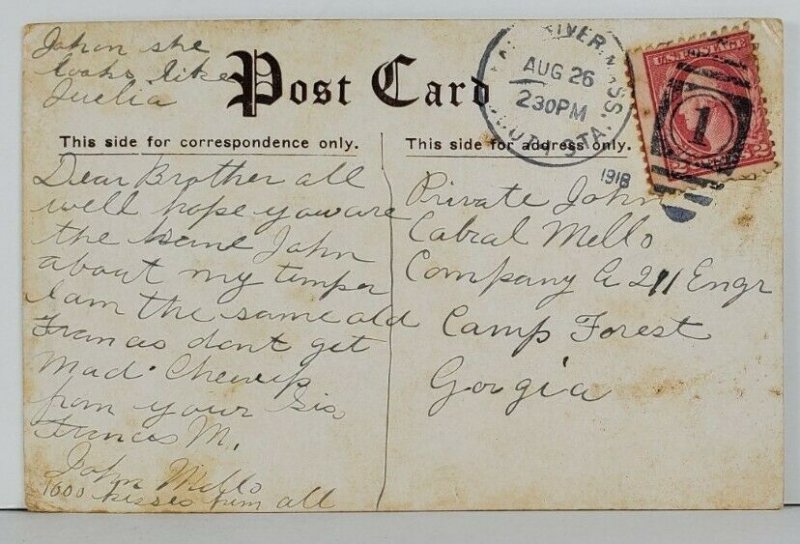 John she
looks like
Juelia
Post Card
This side for correspondence only.
This side for address only.
RIVER, MASS.
AUG 26
230PM
STA.
1918
U.S. POSTAGE
2
1
Dear Brother all
well hope you are
the same John
about my temper
I am the same old
Francis dont get
Mad. Cheerup
from your Sis
Francis M.
John Mello
1000 kisses from all
Private John
Cabral Mello
Company A 211 Engr
Camp Forest
Gorgia